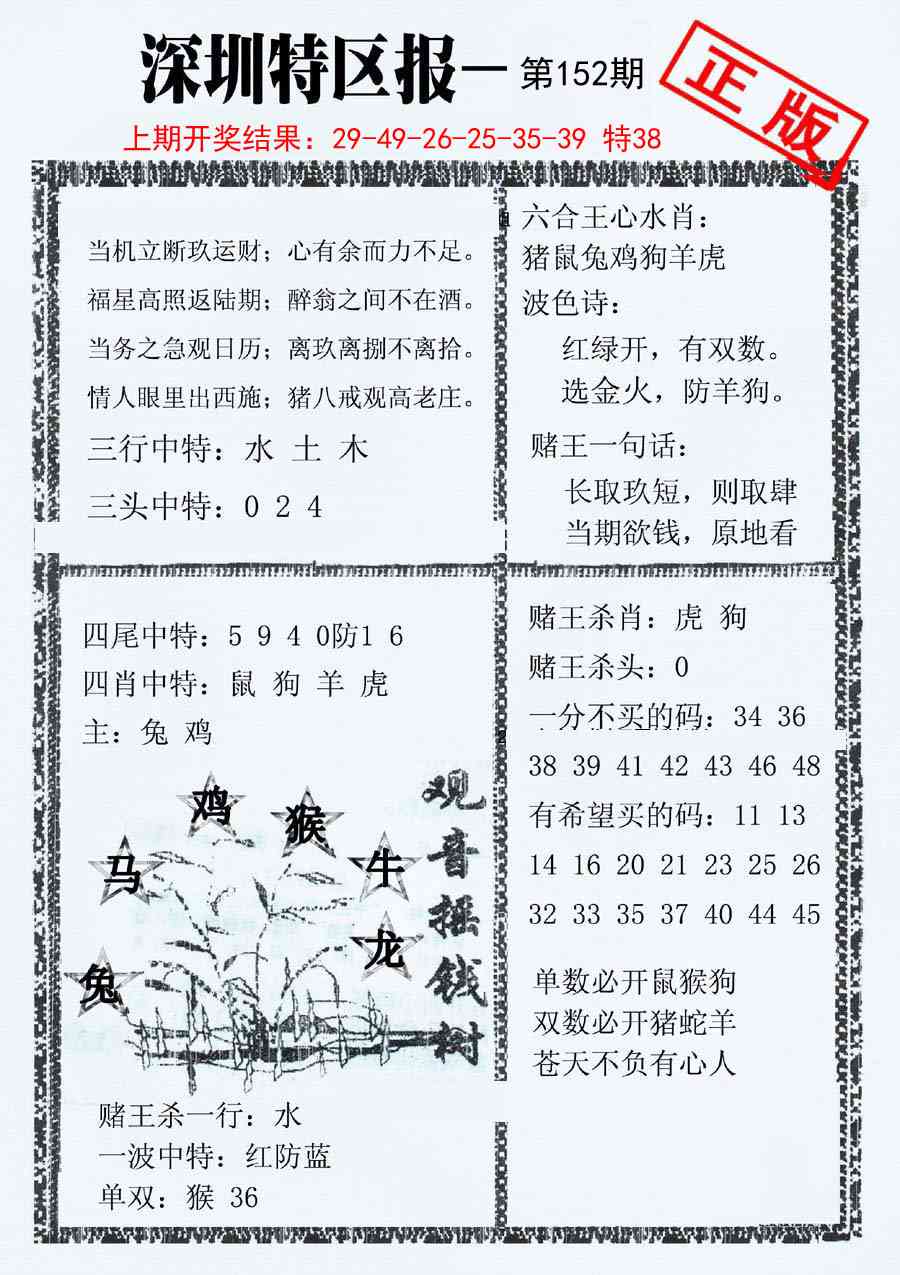 深圳特区报一 第152期
正版
上期开奖结果：29-49-26-25-35-39 特38
当机立断玖运财；心有余而力不足。
福星高照返陆期；醉翁之间不在酒。
当务之急观日历；离玖离捌不离拾。
情人眼里出西施；猪八戒观高老庄。
三行中特：水 土 木
三头中特：0 2 4
六合王心水肖：
猪鼠兔鸡狗羊虎
波色诗：
红绿开，有双数。
选金火，防羊狗。
赌王一句话：
长取玖短，则取肆
当期欲钱，原地看
四尾中特：5 9 4 0防1 6
四肖中特：鼠 狗 羊 虎
主：兔 鸡
鸡
猴
马
牛
龙
兔
观音摇钱树
赌王杀一行：水
一波中特：红防蓝
单双：猴 36
赌王杀肖：虎 狗
赌王杀头：0
一分不买的码：34 36
38 39 41 42 43 46 48
有希望买的码：11 13
14 16 20 21 23 25 26
32 33 35 37 40 44 45
单数必开鼠猴狗
双数必开猪蛇羊
苍天不负有心人